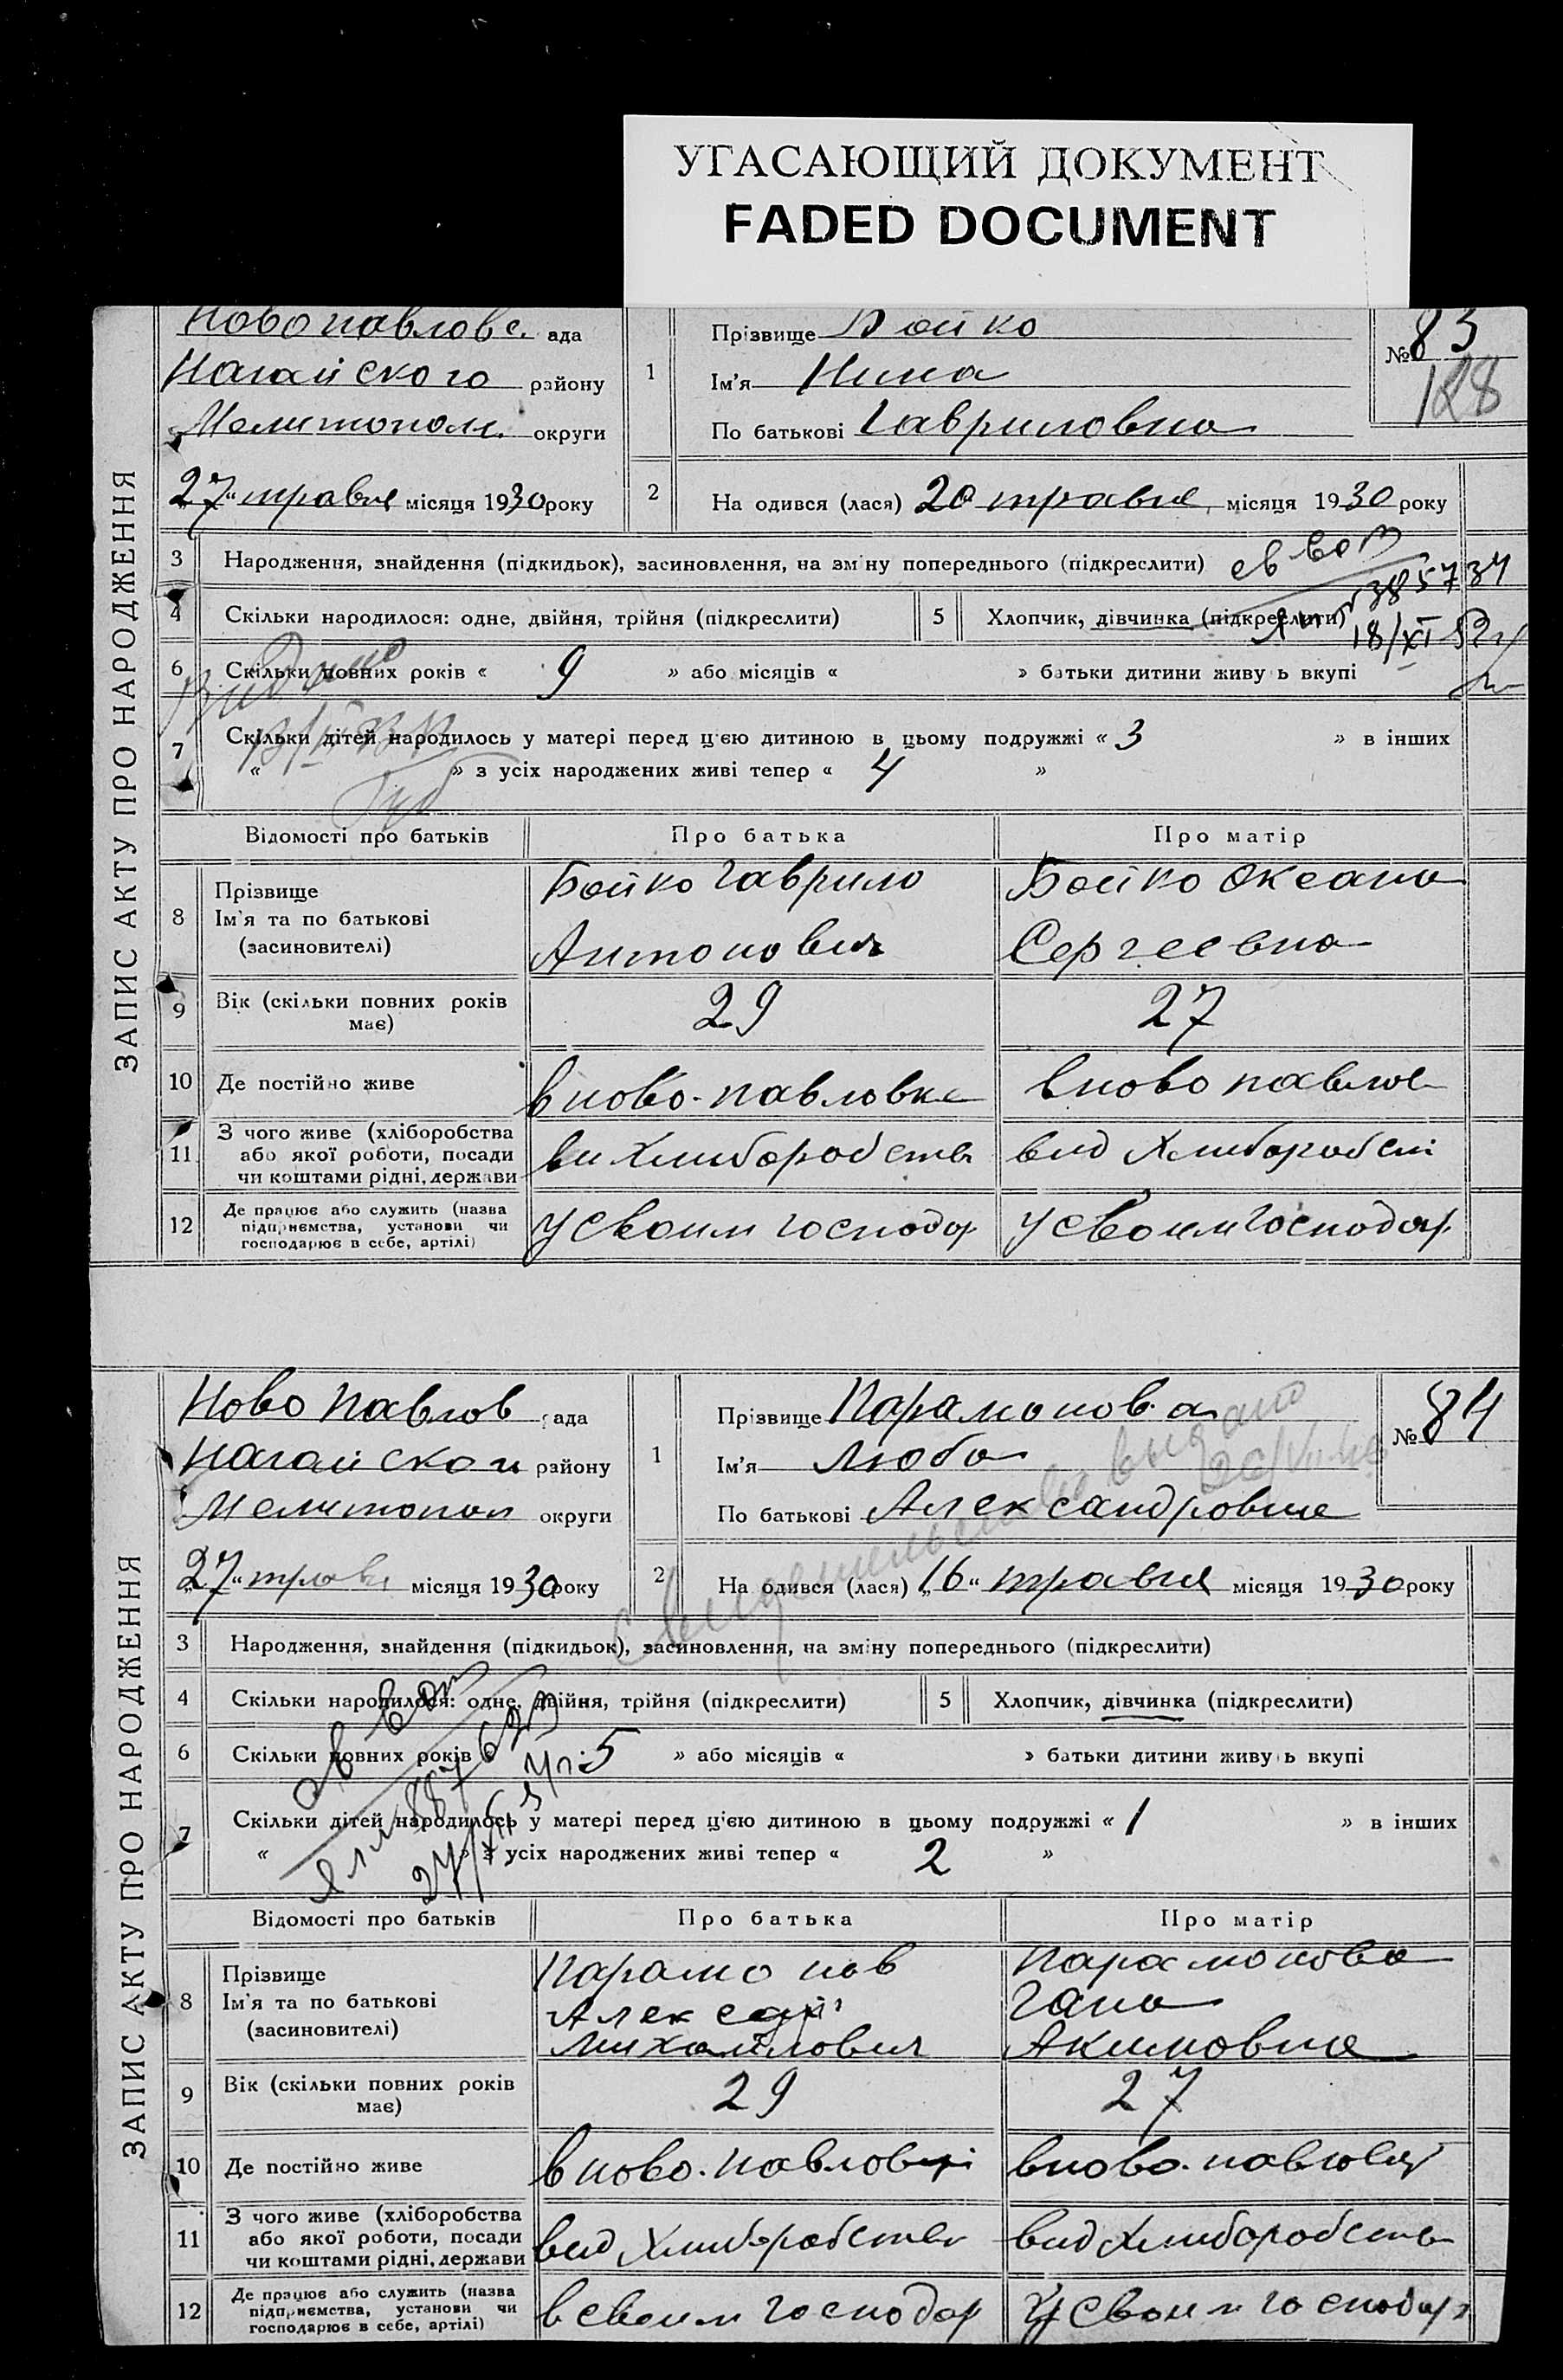 УГАСАЮЩИЙ ДОКУМЕНТ
FADED DOCUMENT
ЗАПИС АКТУ ПРО НАРОДЖЕННЯ
Новопавловс. ада
Нагайского району
Мелитопол. округи
27 " травня місяця 1930 року
1
Прізвище Бойко
Ім'я Нина
По батькові Гавриловна
№ 83
128
2
На одився (лася) 20 травня, місяця 1930 року
3 Народження, знайдення (підкидьок), засиновлення, на зм ну попереднього (підкреслити)
св во
385734
18/XI
4 Скільки народилося: одне, двійня, трійня (підкреслити) 5 Хлопчик, дівчинка (підкреслити)
6 Скільки повних років « 9 » або місяців « » батьки дитини живу ь вкупі
7 Скільки дітей народилось у матері перед ц'єю дитиною в цьому подружжі « 3 » в інших
« » з усіх народжених живі тепер « 4 »
Відомості про батьків Про батька Про матір
8 Прізвище
Ім'я та по батькові
(засиновителі)
Бойко Гаврило
Антонович
Бойко Оксана
Сергеевна
9 Вік (скільки повних років
має)
29 27
10 Де постійно живе
в ново-павловке в ново павлов
11 З чого живе (хліборобства
або якої роботи, посади
чи коштами рідні, держави
ви Хлиборобства вид Хлиборобст
12 Де працює або служить (назва
підприємства, установи чи
господарює в себе, артілі)
У своим господар У своим господар
ЗАПИС АКТУ ПРО НАРОДЖЕННЯ
Ново Павлов ада
Нагайском району
Мелитопол округи
27 " травня місяця 1930 року
1
Прізвище Парамонова
Ім'я Люба
По батькові Александровна
№ 84
Свидетельство выдано
2
На одився (лася) „16" травня місяця 1930 року
3 Народження, знайдення (підкидьок), засиновлення, на зміну попереднього (підкреслити)
4 Скільки народилося: одне, двійня, трійня (підкреслити) 5 Хлопчик, дівчинка (підкреслити)
6 Скільки повних років « 5 » або місяців « » батьки дитини живу ь вкупі
7 Скільки дітей народилось у матері перед ц'єю дитиною в цьому подружжі « 1 » в інших
« » з усіх народжених живі тепер « 2 »
Відомості про батьків Про батька Про матір
8 Прізвище
Ім'я та по батькові
(засиновителі)
Парамонов
Михайлович
Парамонова
Гана
Акимовна
9 Вік (скільки повних років
має)
29 27
10 Де постійно живе
в ново-павловці в ново-павловц
11 З чого живе (хліборобства
або якої роботи, посади
чи коштами рідні, держави
вид Хлиборобства вид Хлиборобства
12 Де працює або служить (назва
підприємства, установи чи
господарює в себе, артілі)
в своим господар У своим господар